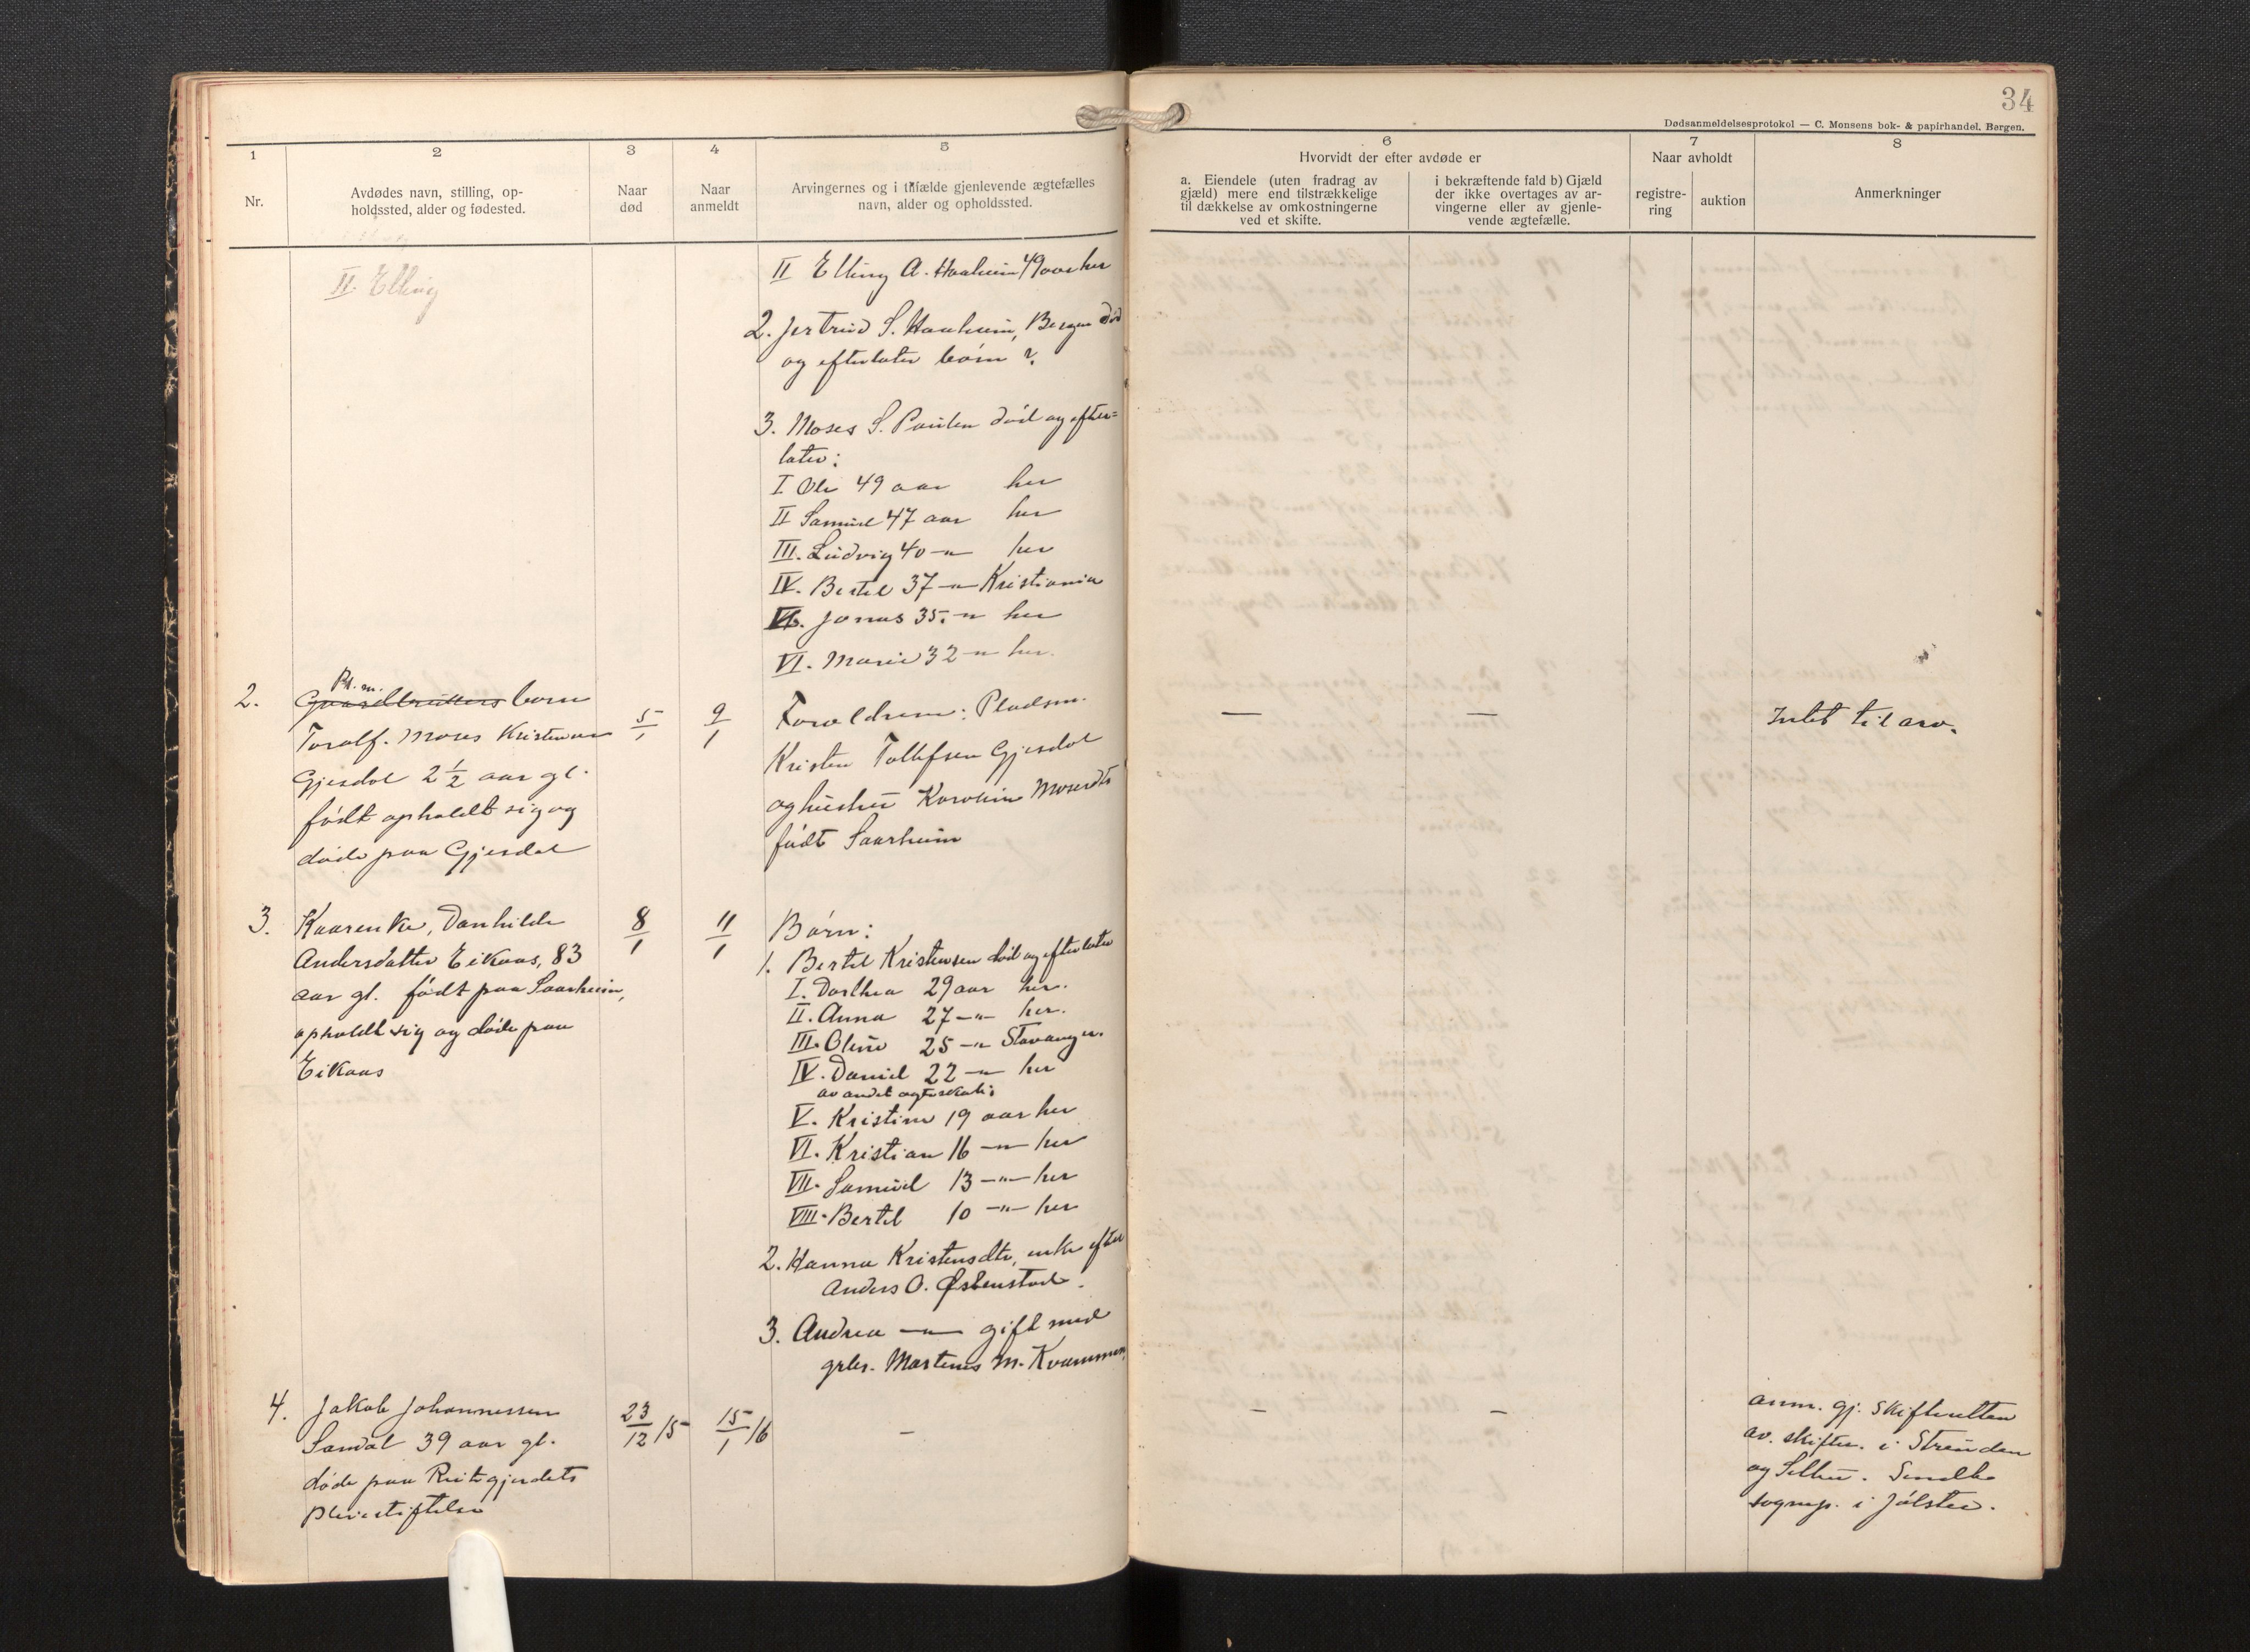 34
Dødsanmeldelsesprotokol — C. Monsens bok- & papirhandel, Bergen.
1
2
3
4
5
Nr.
Avdødes navn, stilling, op-
holdssted, alder og fødested.
Naar
død
Naar
anmeldt
Arvingernes og i tilfælde gjenlevende ægtefælles
navn, alder og opholdssted.
6
Hvorvidt der efter avdøde er
a. Eiendele (uten fradrag av
gjæld) mere end tilstrækkelige
til dækkelse av omkostningerne
ved et skifte.
i bekræftende fald b) Gjæld
der ikke overtages av ar-
vingerne eller av gjenle-
vende ægtefælle.
7
Naar avholdt
registre-
ring
auktion
8
Anmerkninger
II. Elling
II Elling A. Haaheim 49 aar her
2. Jertrud S. Haaheim, Bergen død
og efterlater børn ?
3. Moses S. Paulen død og efter=
later:
I Ole 49 aar her
II Samuel 47 aar her
III. Ludvig 40 –"– her
IV. Bertil 37 –"– Kristiania
V. Jonas 35. –"– her
VI. Marie 32 –"– her.
2.
Pl. m.
Gaardbrukers barn
Toralf. Moses Kristensen
Gjesdal 2 ½ aar gl.
født opholdt sig og
døde paa Gjesdal
5/1
9/1
Foreldrene: Pladsm.
Kristen Tollefsen Gjesdal
og hustru Karoline Mosesdtr
født Saarheim
—
—
Intet til arv.
3.
Kaarenke, Danhilde
Andersdatter Eikaas, 83
aar gl. født paa Saarheim,
opholdt sig og døde paa
Eikaas
8/1
11/1
Børn:
1. Bertel Kristensen død og efterlater
I. Dorthea 29 aar her.
II. Anna 27 –"– her.
III. Oline 25 –"– Stavanger.
IV. Daniel 22 –"– her
av andet egteskab:
V. Kristine 19 aar her
VI. Kristian 16 –"– her
VII. Samuel 13 –"– her
VIII. Bertel 10 –"– her
2. Hanna Kristensdtr, enke efter
Anders O. Østenstad.
3. Andrea –"– gift med
grbr. Martinus M. Kvammen,
4.
Jakob Johannessen
Sandal 39 aar gl.
døde paa Reitgjerdets
Pleiestiftelse
23/12 15
15/1 16
–
–
–
anm. gj. skifteretten
av. skifter. i Strinden
og Selbu. Sendt
sognep. i Jølster.